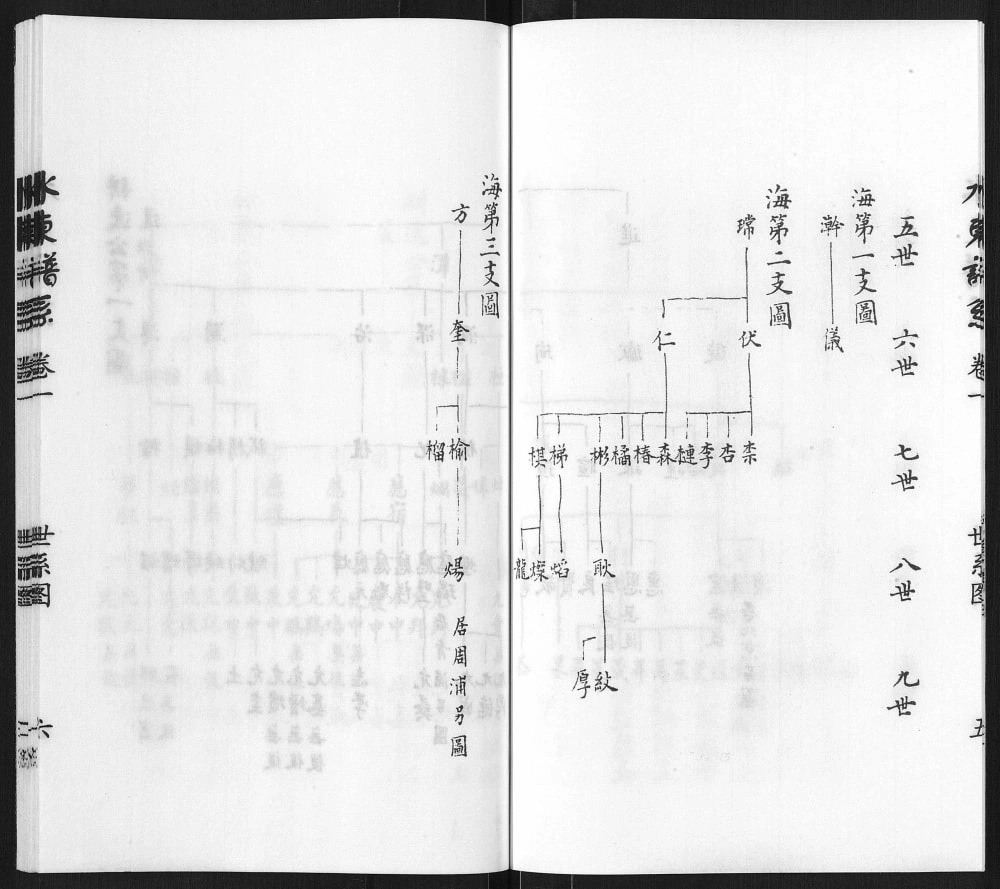 五世
六世
七世
八世
九世
海第一支圖
澣
儀
海第二支圖
瑺
伏
仁
柰
杏
李
槤
森
椿
橘
彬
梯
棋
耿
熖
燦
龍
紋
厚
海第三支圖
方
奎
榆
榴
煬
居周浦另圖
水東譜系
卷一
世系图
五
水東譜系
卷一
世系图
六